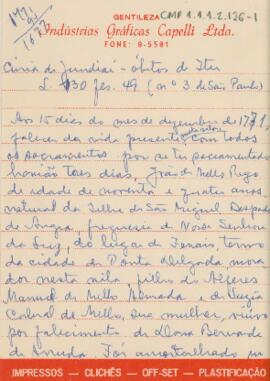 GENTILEZA
CMP 1.1.1.2.126-1
Indústrias Gráficas Capelli Ltda.
FONE: 8-5581
Cúria de Jundiaí - óbitos de Itu
L. 30 fls. 49 (nº 3 de São Paulo)
Aos 15 dias do mes de dezembro de 1771,
faleceu da vida presente com todos
os sacramentos por se ter sacramentado
dias, João de Mello Rego
de idade de noventa e quatro anos
natural da Ilha de São Miguel Bispado
de Angra, freguesia de Nossa Senhora
da Luz, do lugar de Fenais, termo
da cidade de Ponta Delgada mora
dor nesta vila, filho do Alferes
Manuel de Mello Almada e de
Cabral de Mello, sua mulher, viuvo
por falecimento de Dona Bernarda
de Arruda. Foi amortalhado
IMPRESSOS — CLICHÊS — OFF-SET — PLASTIFICAÇÃO